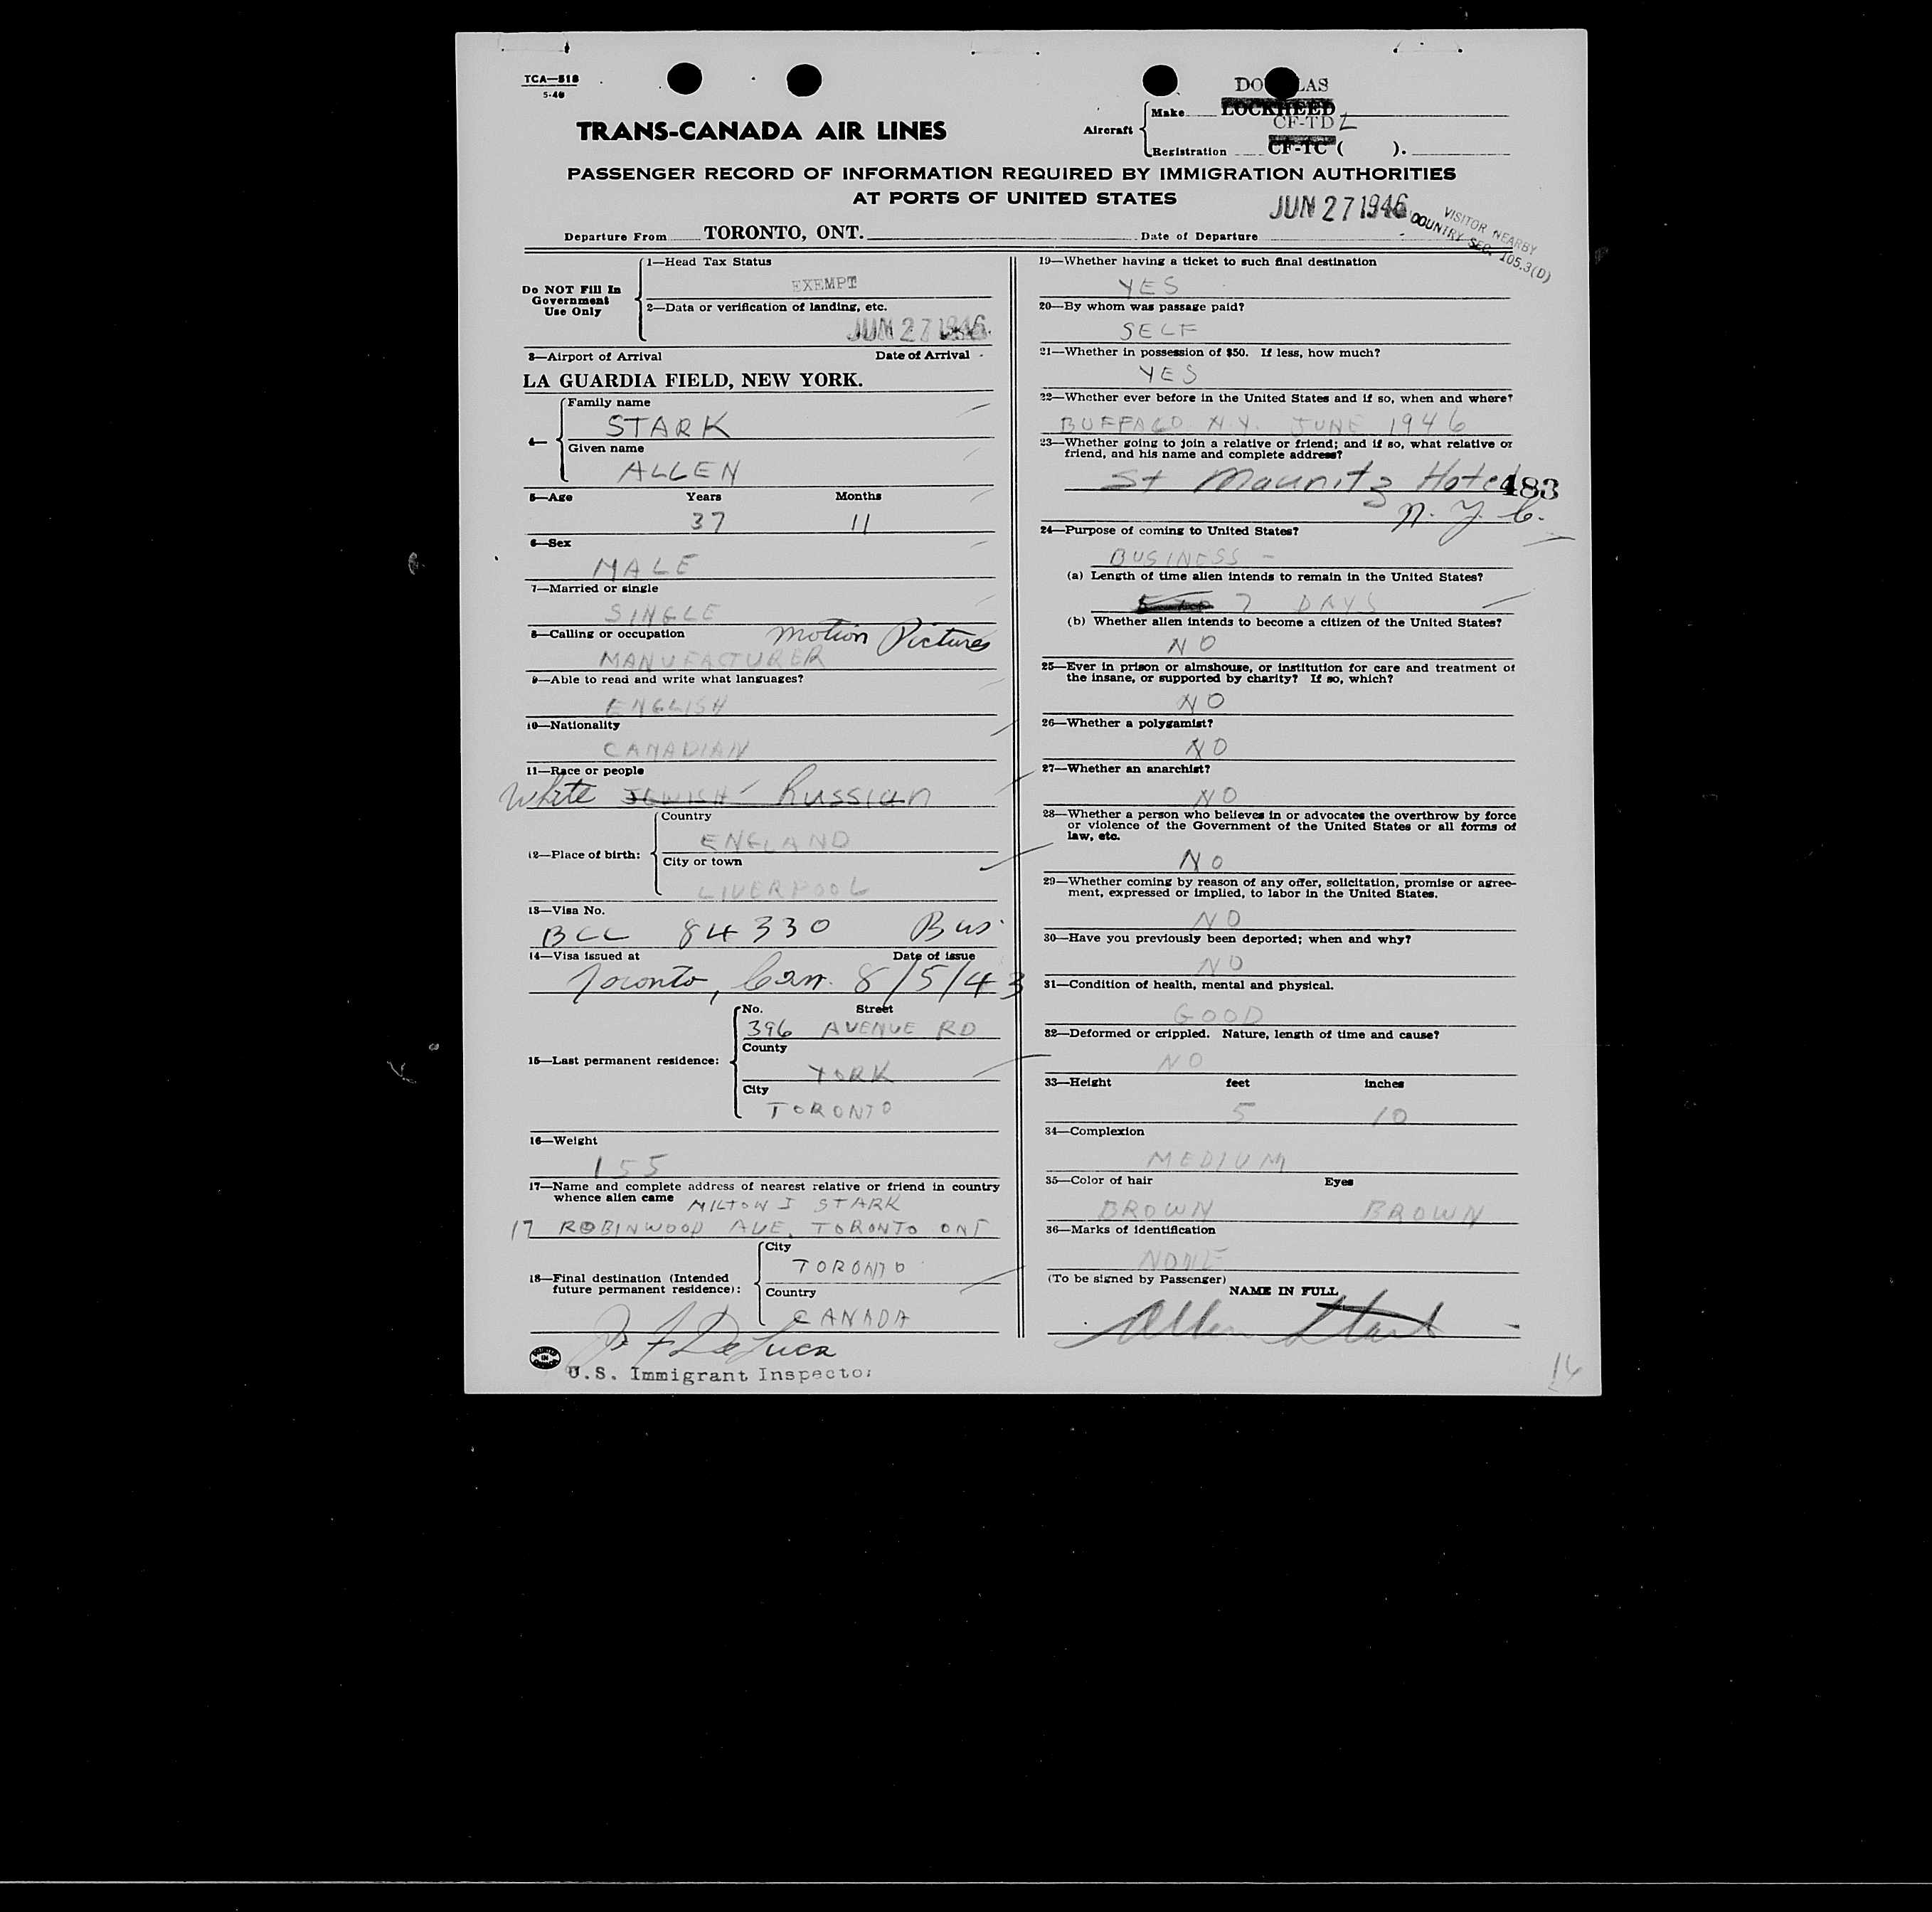 TCA—518
5-46
DO LAS
Make LOCKHEED
CF-TD L
TRANS-CANADA AIR LINES
Aircraft
Registration CF-TC ( ).
PASSENGER RECORD OF INFORMATION REQUIRED BY IMMIGRATION AUTHORITIES
AT PORTS OF UNITED STATES
JUN 27 1946
VISITOR NEARBY
COUNTRY SEC. 105.3(D)
Departure From TORONTO, ONT. Date of Departure
Do NOT Fill In
Government
Use Only
1—Head Tax Status
EXEMPT
2—Data or verification of landing, etc.
JUN 27 1946
3—Airport of Arrival Date of Arrival
LA GUARDIA FIELD, NEW YORK.
4—
Family name
STARK
Given name
ALLEN
5—Age Years Months
37 11
6—Sex
MALE
7—Married or single
SINGLE
8—Calling or occupation Motion Pictures
MANUFACTURER
9—Able to read and write what languages?
ENGLISH
10—Nationality
CANADIAN
11—Race or people
White JEWISH Russian
12—Place of birth:
Country
ENGLAND
City or town
LIVERPOOL
13—Visa No.
BCC 84330 Bus.
14—Visa issued at Date of issue
Toronto, Can. 8/5/43
15—Last permanent residence:
No. Street
396 AVENUE RD
County
YORK
City
TORONTO
16—Weight
155
17—Name and complete address of nearest relative or friend in country
whence alien came MILTON I STARK
17 ROBINWOOD AVE, TORONTO ONT
18—Final destination (Intended
future permanent residence):
City
TORONTO
Country
CANADA
J. F. DeLuca
U.S. Immigrant Inspector
19—Whether having a ticket to such final destination
YES
20—By whom was passage paid?
SELF
21—Whether in possession of $50. If less, how much?
YES
22—Whether ever before in the United States and if so, when and where?
BUFFALO N.Y. JUNE 1946
23—Whether going to join a relative or friend; and if so, what relative or
friend, and his name and complete address?
St Maunitz Hotel 483
N.Y.C.
24—Purpose of coming to United States?
BUSINESS -
(a) Length of time alien intends to remain in the United States?
7 DAYS
(b) Whether alien intends to become a citizen of the United States?
NO
25—Ever in prison or almshouse, or institution for care and treatment of
the insane, or supported by charity? If so, which?
NO
26—Whether a polygamist?
NO
27—Whether an anarchist?
NO
28—Whether a person who believes in or advocates the overthrow by force
or violence of the Government of the United States or all forms of
law, etc.
NO
29—Whether coming by reason of any offer, solicitation, promise or agree-
ment, expressed or implied, to labor in the United States.
NO
30—Have you previously been deported; when and why?
NO
31—Condition of health, mental and physical.
GOOD
32—Deformed or crippled. Nature, length of time and cause?
NO
33—Height feet inches
5 10
34—Complexion
MEDIUM
35—Color of hair Eyes
BROWN BROWN
36—Marks of identification
NONE
(To be signed by Passenger)
NAME IN FULL
Allen Stark